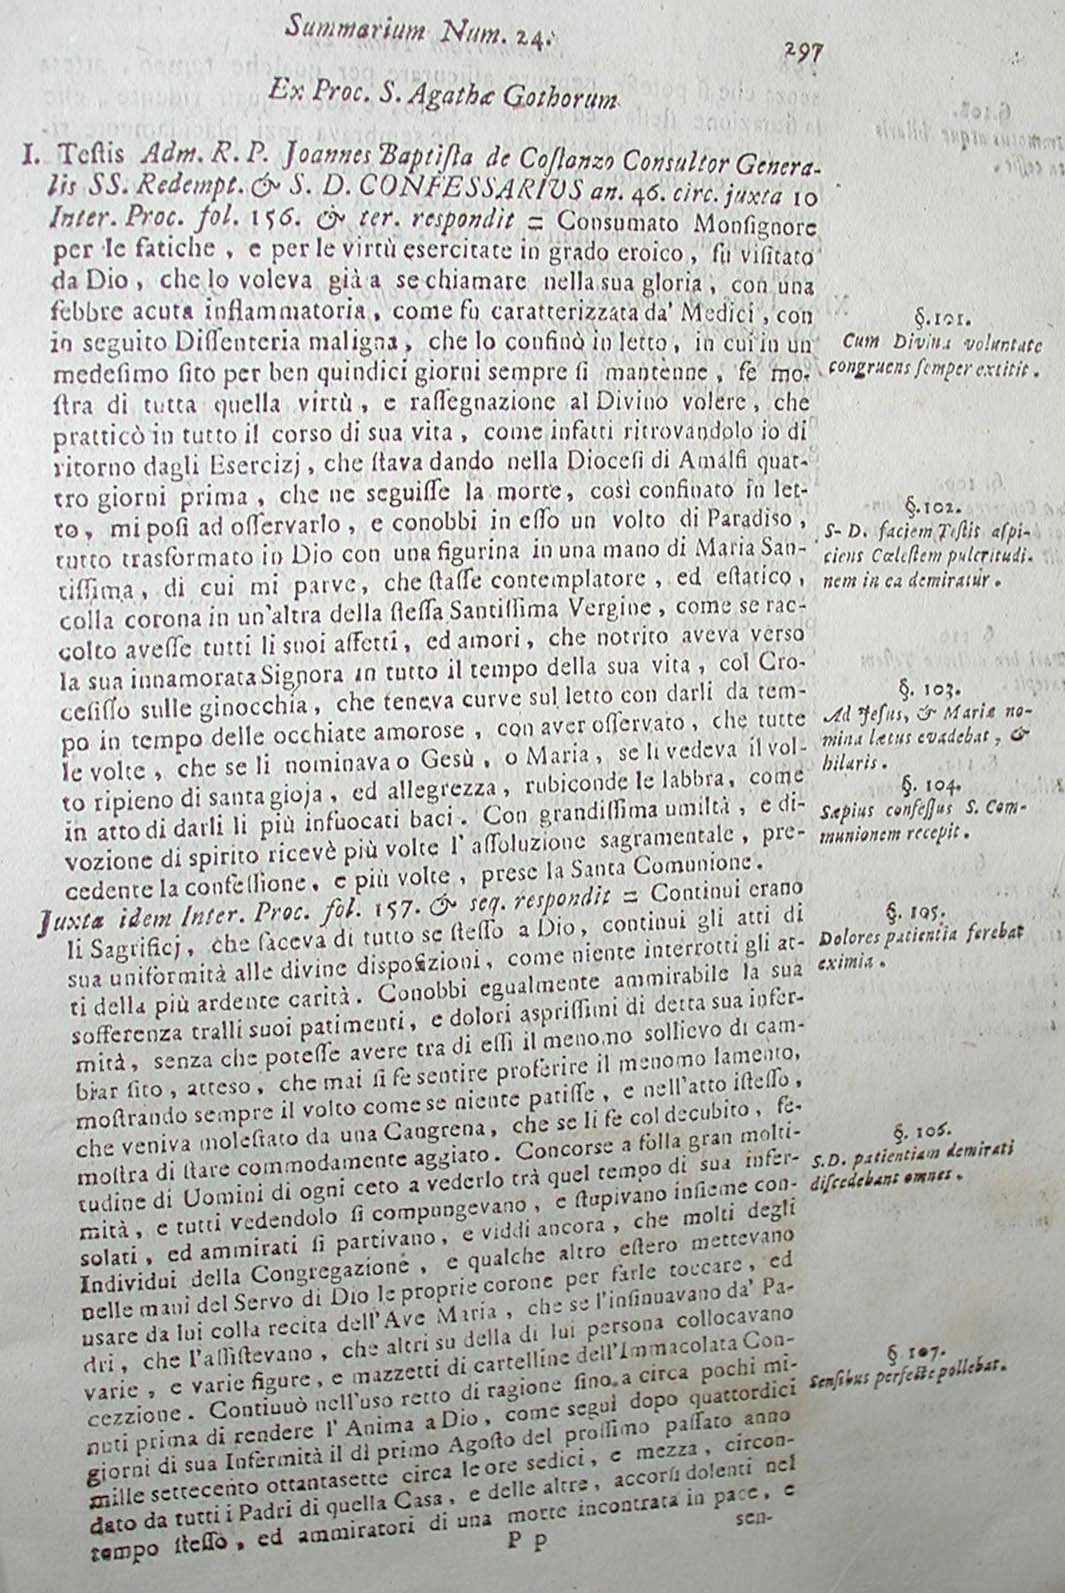 Summarium Num. 24.
297
Ex Proc. S. Agathæ Gothorum
I. Teſtis Adm. R. P. Joannes Baptiſta de Coſtanzo Conſultor Genera-
lis SS. Redempt. & S. D. CONFESSARIUS an. 46. circ. juxta 10
Inter. Proc. fol. 156. & ter. reſpondit = Conſumato Monſignore
per le fatiche, e per le virtù eſercitate in grado eroico, fu viſitato
da Dio, che lo voleva già a se chiamare nella sua gloria, con una
febbre acuta inflammatoria, come fu caratterizzata da' Medici, con
in seguito Diſſenteria maligna, che lo confinò in letto, in cui in un
medeſimo ſito per ben quindici giorni sempre ſi mantenne, fe mo-
ſtra di tutta quella virtù, e raſſegnazione al Divino volere, che
pratticò in tutto il corso di sua vita, come infatti ritrovandolo io di
ritorno dagli Esercizj, che ſtava dando nella Dioceſi di Amalfi quat-
tro giorni prima, che ne seguiſſe la morte, così confinato in let-
to, mi poſi ad oſſervarlo, e conobbi in eſſo un volto di Paradiso,
tutto trasformato in Dio con una figurina in una mano di Maria San-
tiſſima, di cui mi parve, che ſtaſſe contemplatore, ed eſtatico,
colla corona in un'altra della ſteſſa Santiſſima Vergine, come se rac-
colto aveſſe tutti li suoi affetti, ed amori, che notrito aveva verso
la sua innamorata Signora in tutto il tempo della sua vita, col Cro-
cefiſſo sulle ginocchia, che teneva curve sul letto con darli da tem-
po in tempo delle occhiate amorose, con aver oſſervato, che tutte
le volte, che se li nominava o Gesù, o Maria, se li vedeva il vol-
to ripieno di santa gioja, ed allegrezza, rubiconde le labbra, come
in atto di darli li più infuocati baci. Con grandiſſima umiltà, e di-
vozione di spirito ricevè più volte l'aſſoluzione sagramentale, pre-
cedente la confeſſione, e più volte, prese la Santa Comunione.
Juxta idem Inter. Proc. fol. 157. & seq. reſpondit = Continui erano
li Sagrificj, che faceva di tutto se ſteſſo a Dio, continui gli atti di
sua uniformità alle divine disposizioni, come niente interrotti gli at-
ti della più ardente carità. Conobbi egualmente ammirabile la sua
sofferenza tralli suoi patimenti, e dolori aspriſſimi di detta sua infer-
mità, senza che poteſſe avere tra di eſſi il menomo sollievo di cam-
biar ſito, atteso, che mai ſi fe sentire proferire il menomo lamento,
moſtrando sempre il volto come se niente patiſſe, e nell'atto iſteſſo,
che veniva moleſtato da una Cangrena, che se li fe col decubito, fe-
moſtra di ſtare commodamente aggiato. Concorse a folla gran molti-
tudine di Uomini di ogni ceto a vederlo trà quel tempo di sua infer-
mità, e tutti vedendolo ſi compungevano, e ſtupivano inſieme con-
solati, ed ammirati ſi partivano, e viddi ancora, che molti degli
Individui della Congregazione, e qualche altro eſtero mettevano
nelle mani del Servo di Dio le proprie corone per farle toccare, ed
usare da lui colla recita dell'Ave Maria, che se l'inſinuavano da' Pa-
dri, che l'aſſiſtevano, che altri su della di lui persona collocavano
varie, e varie figure, e mazzetti di cartelline dell'Immacolata Con-
cezzione. Continuò nell'uso retto di ragione fino a circa pochi mi-
nuti prima di rendere l'Anima a Dio, come seguì dopo quattordici
giorni di sua Infermità il dì primo Agoſto del proſſimo paſſato anno
mille settecento ottantasette circa le ore sedici, e mezza, circon-
dato da tutti i Padri di quella Casa, e delle altre, accorſi dolenti nel
tempo ſteſſo, ed ammiratori di una morte incontrata in pace, e
P p
sen-
§. 101.
Cum Divina voluntate
congruens ſemper extitit.
§. 102.
S- D. faciem Teſtis aſpi-
ciens Cœleſtem pulcritudi-
nem in ea demiratur.
§. 103.
Ad Jeſus, & Mariæ no-
mina lætus evadebat, &
hilaris.
§. 104.
Sæpius confeſſus S. Com-
munionem recepit.
§. 105.
Dolores patientia ferebat
eximia.
§. 106.
S.D. patientiam demirati
diſcedebant omnes.
§. 107.
Senſibus perfecte pollebat.